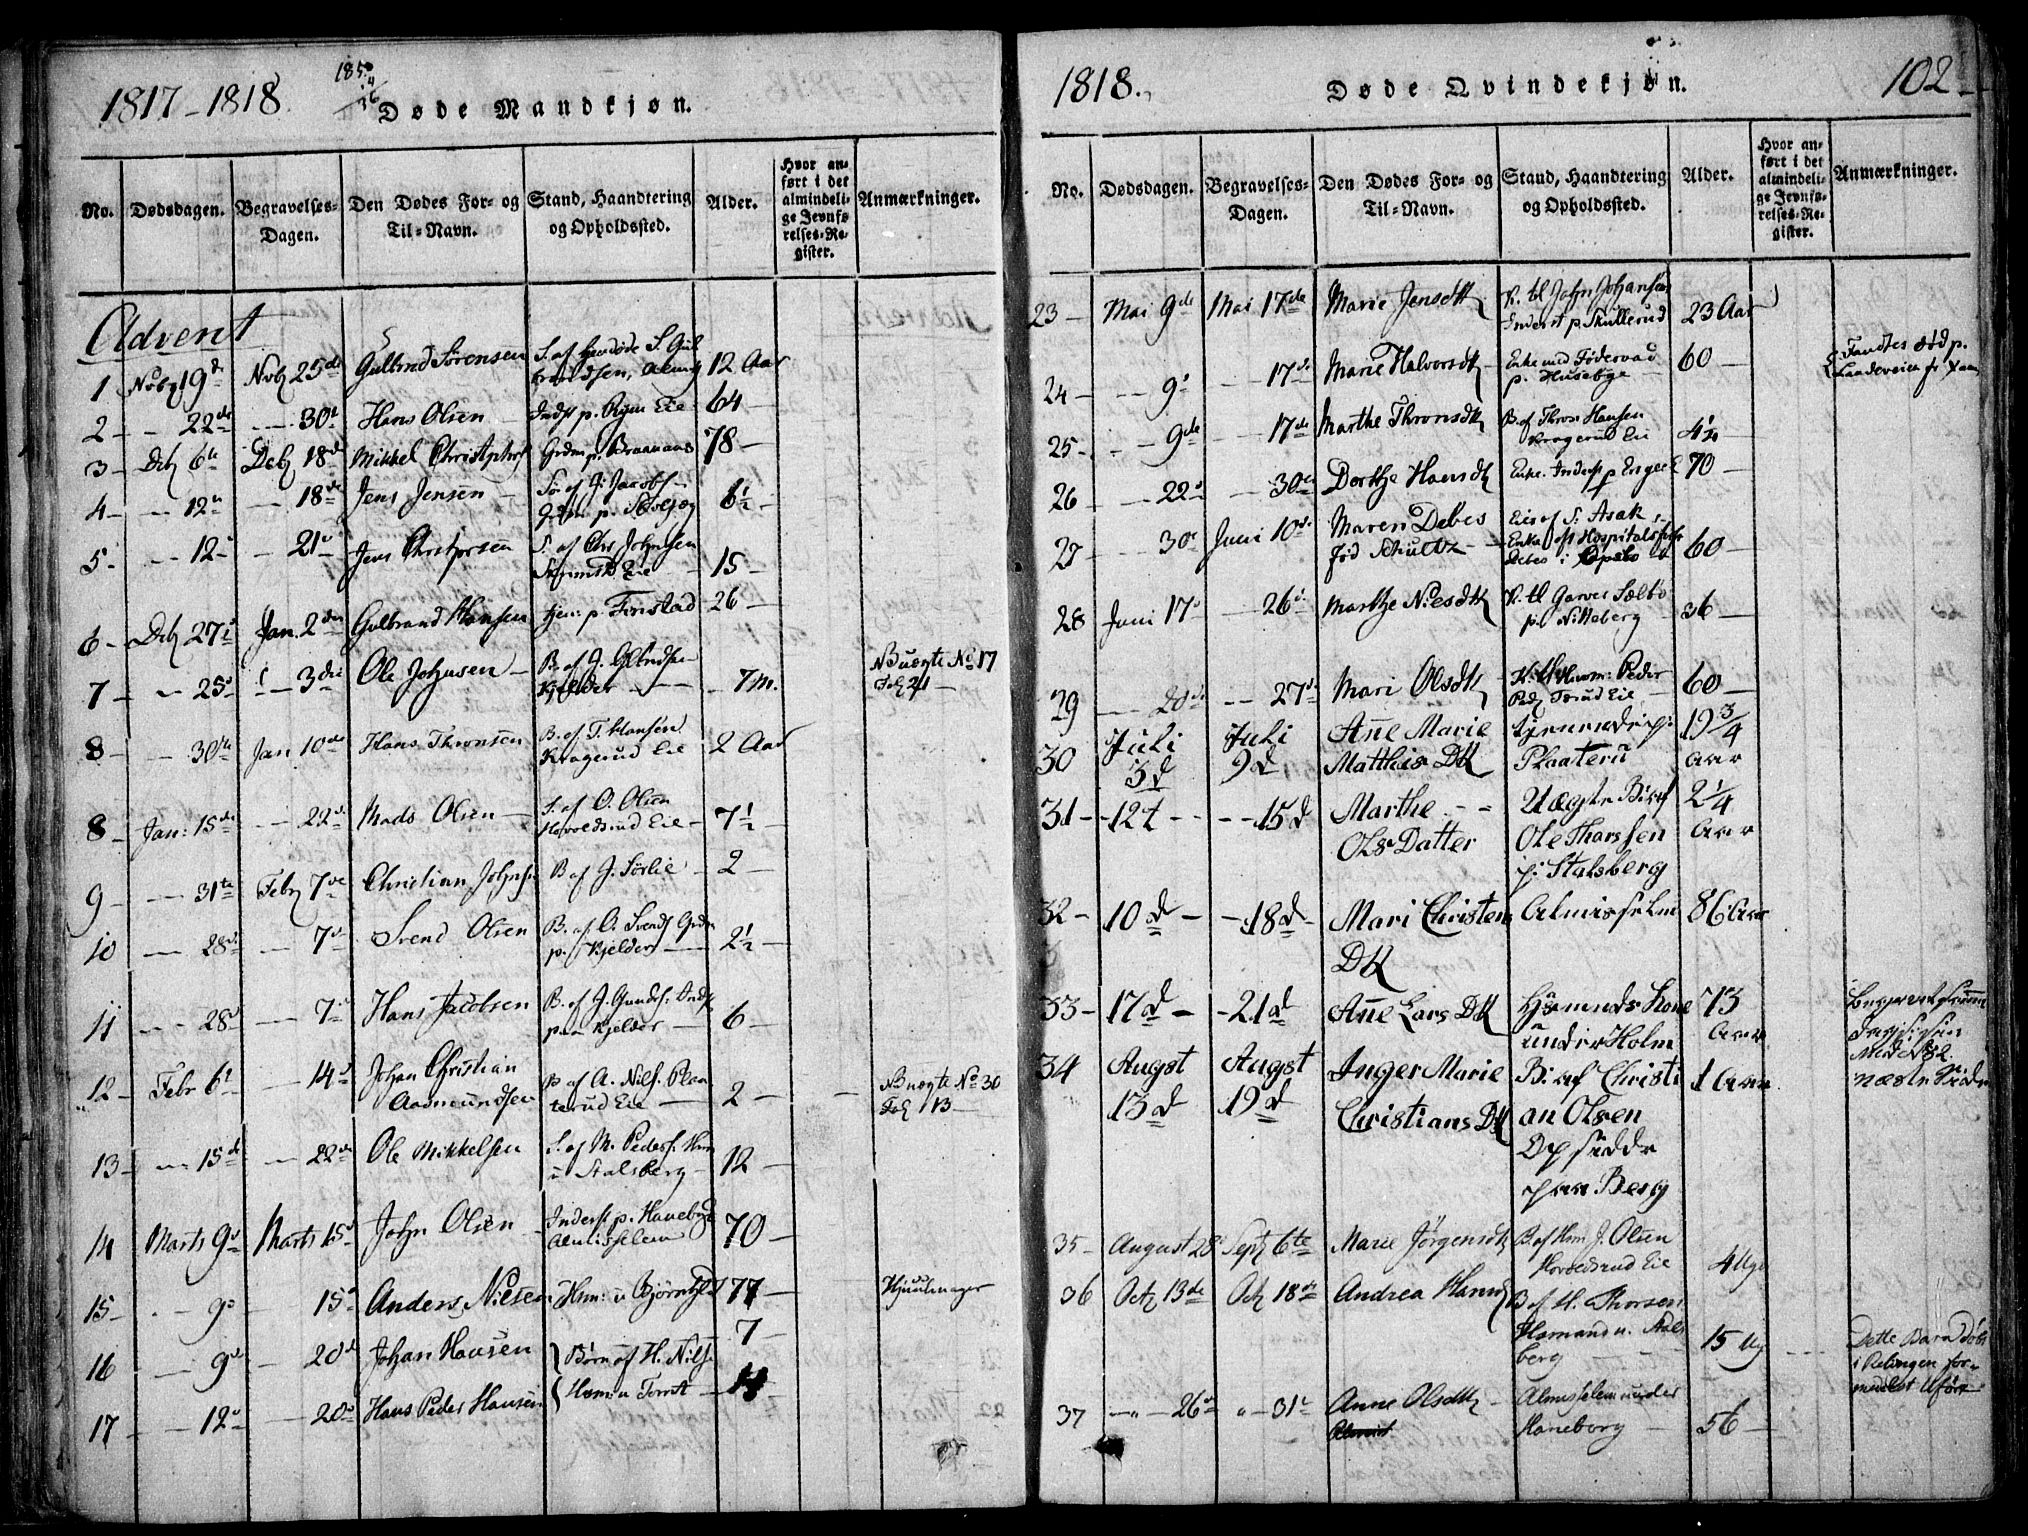 1817-1818.
Døde Mandkjøn.
No.
Dødsdagen.
Begravelses-
Dagen.
Den Dødes For- og
Til-Navn.
Stand, Haandtering
og Opholdssted.
Alder.
Hvor an-
ført i det
almindeli-
ge Jevnfø-
relses-Re-
gister.
Anmærkninger.
Advent
1 Novbr 19d Nvb 25de Gulbrnd Sörensen 12 Aar
2 - 22de - 30t Hans Olsen Indst p. Ryen Eie 64
3 - Deb 6te Deb 18de Mikkel Christophers 78
4 - 12te - 18de Jens Jensen 6½
5 - 12 - 21 Jens Christophersen S. af Chr Johnsen 15
6 - Deb 27d Jan. 2den Gulbrand Hansen tjen: p. Tonstad 26
7 - 25d - 3die Ole Johnsen B. af J. Kjelder 7 m. NB uægte No 17
8 - 30te Jan 10de Hans Thronsen B. af T. Hansen
Kragerud Eie 2 Aar
8 - Jan: 15de - 22de Mads Olsen S. af O. Olsen
Hovoldsrud Eie 7½
9 - 31te Febr 7de Christian Johns. B af J. Sörlie 2
10 - 28de - 7d Svend Olsen B. af O. Svends
p. Kjelder 2½
11 - 28d - 7d Hans Jacobsen B. af J. Gunds: Inds
paa Kjelder 6
12 Febr 6t - 14d Johan Christian
Aasmundsen B af A. Nils: Plan
terud Eie 2 NB uægte No 30
Fol 113
13 - 15de - 22de Ole Mikkelsen S. af M. Peders: Hm
u Stalsberg 12
14 Marts 9d Marts 15d John Olsen Inderst p. Haneborg
Almisselem 70
15 - 9d 15d Anders Nielsen Hm: u Bjørnholt 77 Hjuulmager
16 - 9d - 20d Johan Hansen Børn af H. Nilss 7
17 - 12d - 20d Hans Peder Hansen Hsm: u Torret
1818.
Døde Qvindekjøn.
102
No.
Dødsdagen.
Begravelses-
Dagen.
Den Dødes For- og
Til-Navn.
Stand, Haandtering
og Opholdssted.
Alder.
Hvor an-
ført i det
almindeli-
ge Jevnfø-
relses-Re-
gister.
Anmærkninger.
23 - Mai 9de Mai 17de Marie Jensdtr K. til John Johansen
Inderst p. Skullerud 23 Aar
24 - 9d - 17d Marie Halvorsdtr Enke med Föderaad
p. Husebye 60 Fandtes död p.
Landeveien fr
25 - 9de - 17de Marthe Thronsdtr B. af Thron Hansen
Kragerud Eie 4½
26 - 22d - 30te Dorthe Hansdtr Enke. Inderst p 70
27 - 30t Juni 10de Maren Debes
föd Schultz Eier af S: Asak
Enke eft Hospitalsfor
Debes i Opslo 60
28 Juni 17d - 26d Marthe Nielsdtr K. til Garver Sælbo
p. Nitteberg 36
29 - 20de - 27d Mari Olsdtr K. til Huusm: Peder
Ped Torud Eie 60
30 Juli
3d Juli
9d Anne Marie
Matthis Dtr tjenende p:
Plaaterud 19¾
Aar
31 - 12t - 15d Marthe
Ols Datter Uægte B: af
Ole Tharssen
p: Stalsberg 2¼
Aar
32 - 10d - 18d Mari Christens
Dtr Almisselm 86 Aar
33 - 17d - 21d Anne Lars Dtr Huusmands Kone
under Holm 73
Aar
Med No 2.
næste Side
34 Augst
13d Augst
19d Inger Marie
Christians Dtr B: af Christi
an Olsen
Opsidder
paa Berg 1 Aar
35 - August 28 Septb 6te Marie Jörgensdtr B. af Hsm J. Olsen
Hovoldsrud Eie 4 Ug
36 Octb 13de Octb 18de Andrea Hansdtr B af H. Thorsen
Husmand u. Stals
berg 15 Ug Dette Barn döbt
i Relingen for-
medelst Uföre
37 - 26d - 31t Anne Olsdtr Almisselem under
Haneborg 56